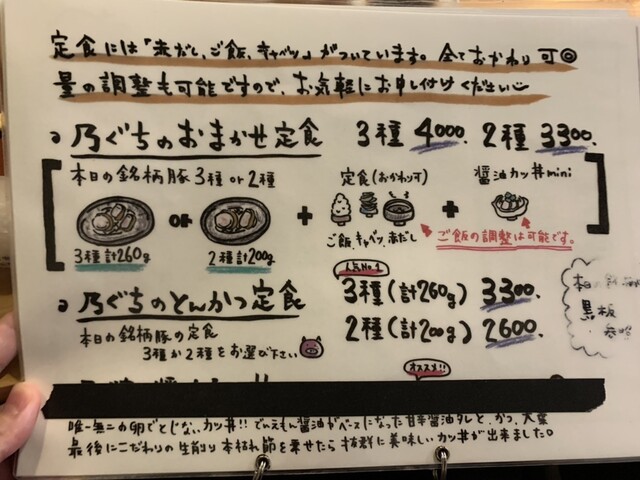 定食には「赤だし、ご飯、キャベツ」がついています。全ておかわり可◎
量の調整も可能ですので、お気軽にお申し付けください
乃ぐちのおまかせ定食 3種 4000. 2種 3300.
本日の銘柄豚3種or2種
定食(おかわり可)
醤油カツ丼mini
or
+
+
3種計260g
2種計200g
ご飯、キャベツ、赤だし
ご飯の調整は可能です。
乃ぐちのとんかつ定食
人気No.1
3種(計260g) 3300.
2種(計200g) 2600.
本日の銘柄豚の定食
3種か2種をお選び下さい
本日
黒板
参照
オススメ!!
唯一無二の卵でとじない、カツ丼!!でいえもん醤油がベースになった甘辛醤油タレと、かつ、大葉
最後にこだわりの生削り本枯れ節を乗せたら抜群に美味しいカツ丼が出来ました。